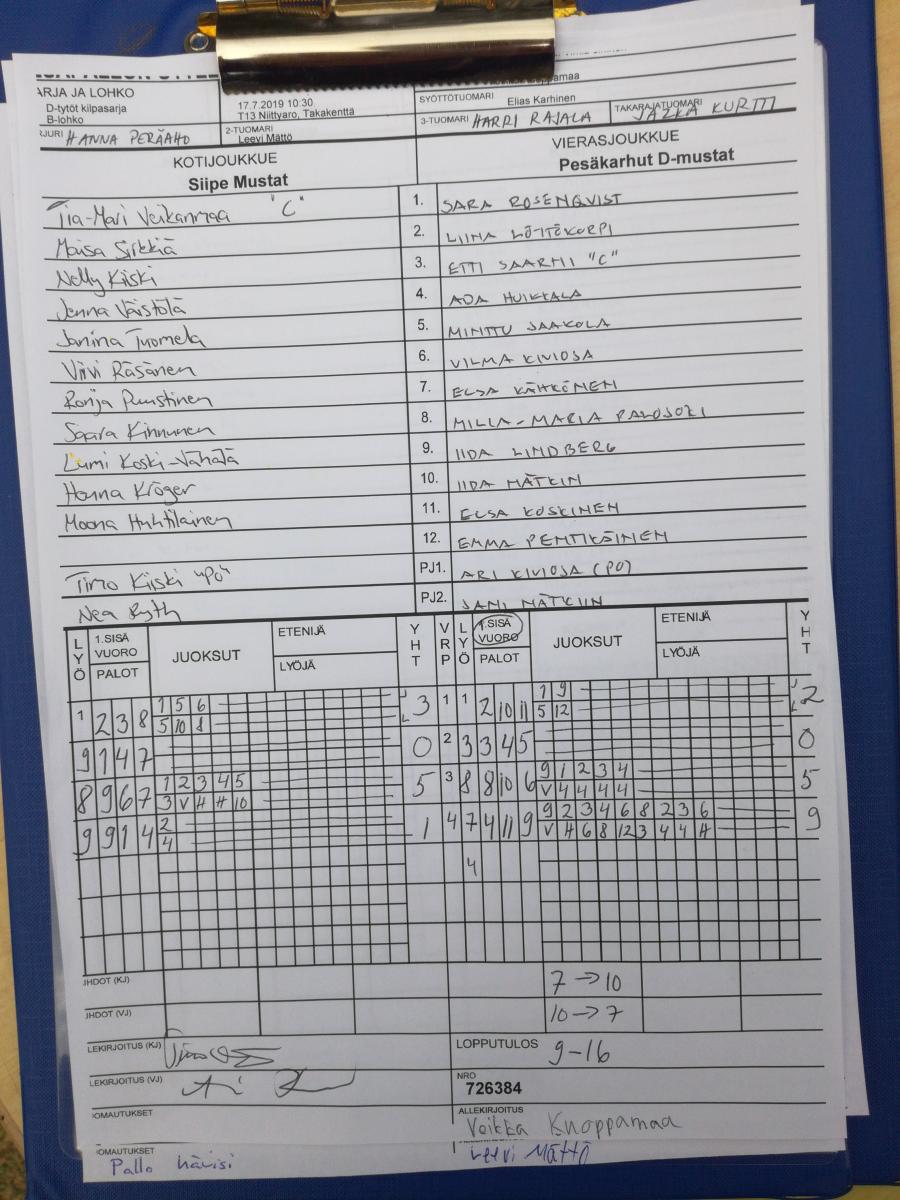 ARJA JA LOHKO
D-tytöt kilpasarja
B-lohko
17.7.2019 10:30
T13 Niittyaro, Takakenttä
SYÖTTÖTUOMARI Elias Karhinen
JURI HANNA PERÄAHO
2-TUOMARI Leevi Mättö
3-TUOMARI HARRI RAJALA
TAKARAJATUOMARI JAZKA KURTTI
KOTIJOUKKUE VIERASJOUKKUE
Siipe Mustat Pesäkarhut D-mustat
Tia-Mari Veikanmaa "C" 1. SARA ROSENQVIST
Maisa Sirkkiä 2. LIINA LÖTTÖKORPI
Nelly Kiiski 3. ETTI SAARMI "C"
Jenna Väistölä 4. ADA HUIKKALA
Janina Tuomela 5. MINTTU JAAKOLA
Viivi Räsänen 6. VILMA KIVIOJA
Ronja Puustinen 7. ELSA KÄHKÖNEN
Saara Kinnunen 8. MILLA-MARIA PALOJOKI
Lumi Koski-Vähälä 9. IIDA LINDBERG
Hanna Kröger 10. IIDA MÄTKIN
Moona Huhtilainen 11. ELSA KOSKINEN
12. EMMA PENTIKÄINEN
Timo Kiiski "PO" PJ1. ARI KIVIOJA (PO)
Nea PJ2. JANI MÄTKIIN
LYÖ 1.SISÄ VUORO PALOT JUOKSUT ETENIJÄ LYÖJÄ YHT VRP LYÖ 1.SISÄ VUORO PALOT JUOKSUT ETENIJÄ LYÖJÄ YHT
1 2 3 8 1 5 6 3 1 1 2 10 11 1 9 2
5 10 8 5 12
9 1 4 7 0 2 3 3 4 5 0
8 9 6 7 1 2 3 4 5 5 3 8 8 10 6 9 1 2 3 4 5
3 V H H 10 V 4 4 4 4
9 9 1 4 2 1 4 7 4 11 9 9 2 3 4 6 8 2 3 6 9
4 V H 6 8 12 3 4 4 H
4
JHDOT (KJ) 7 → 10
JHDOT (VJ) 10 → 7
LEKIRJOITUS (KJ) LOPPUTULOS 9-16
LEKIRJOITUS (VJ) NRO
726384
OMAUTUKSET ALLEKIRJOITUS
Veikka Knoppamaa
OMAUTUKSET Leevi Mättö
Pallo hävisi